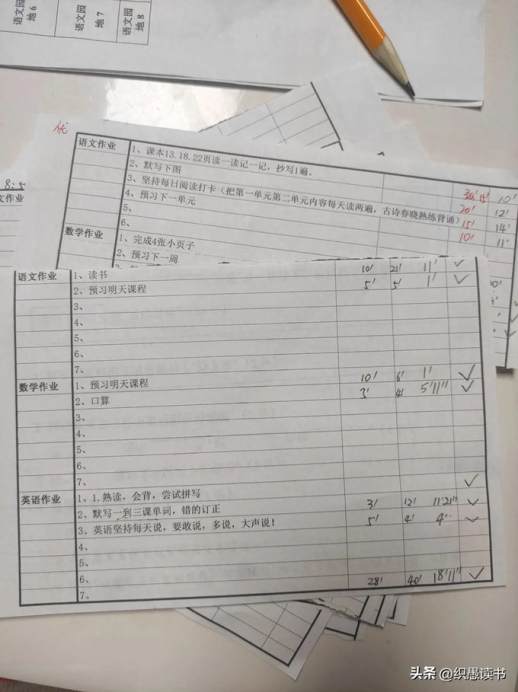 语文园
地6
语文园
地7
语文园
地8
优
语文作业
1、课本13.18.22页读一读记一记，抄写1遍。
2、默写下图
3、坚持每日阅读打卡（把第一单元第二单元内容每天读两遍，古诗春晓熟练背诵）
4、预习下一单元
5、
6、
20' 12'
15' 14'
10' 11'
数学作业
1、完成4张小页子
2、预习下一周
语文作业
1、读书 10' 21' 11' ✓
2、预习明天课程 5' 5' 1' ✓
3、
4、
5、
6、
7、
数学作业
1、预习明天课程 10' 6' 1' ✓
2、口算 3' 4' 5'11" ✓
3、
4、
5、
6、
7、 ✓
英语作业
1、1.熟读，会背，尝试拼写 3' 12' 11'21" ✓
2、默写一到三课单词，错的订正 5' 4' 4' ✓
3、英语坚持每天说，要敢说，多说，大声说！
4、
5、
6、 28' 40' 18'11" ✓
7、
头条 @织愚读书